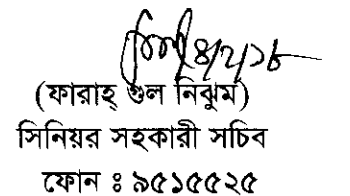 (ফারাহ্ গুল নিঝুম)
সিনিয়র সহকারী সচিব
ফোন ঃ ৯৫১৫৫২৫